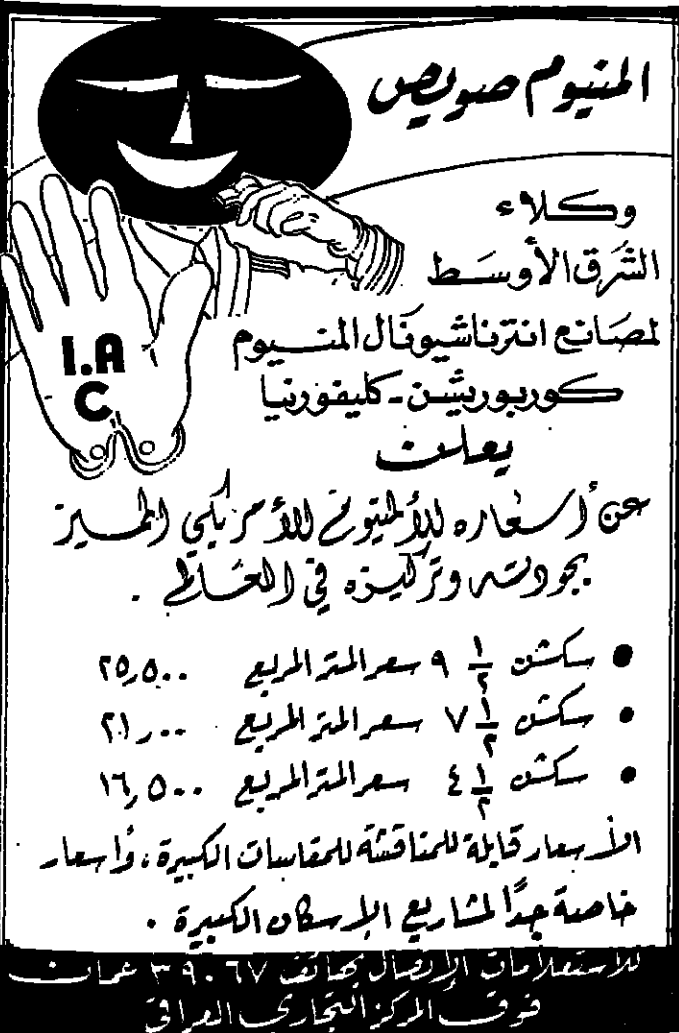 المنيوم صويص
وكلاء
الشرق الأوسط
لمصانع انترناشيونال المنيوم
كوربوريشن - كليفورنيا
I.A
C
يعلن
عن أسعاره للألمنيوم الأمريكي المميز
بجودته وتركيزه في
• سكشن ٩ ١/٢ سعر المتر المربع ٢٥٫٥٠٠
• سكشن ٧ ١/٢ سعر المتر المربع ٢١٫٠٠
• سكشن ٤ ١/٢ سعر المتر المربع ١٦٫٥٠٠
الأسعار قابلة للمناقشة للمقاسات الكبيرة، وأسعار
خاصة جداً لمشاريع الإسكان الكبيرة .
للاستعلامات الإتصال بهاتف ٣٩٠٦٧ عمان
فوق المركز التجاري العراقي